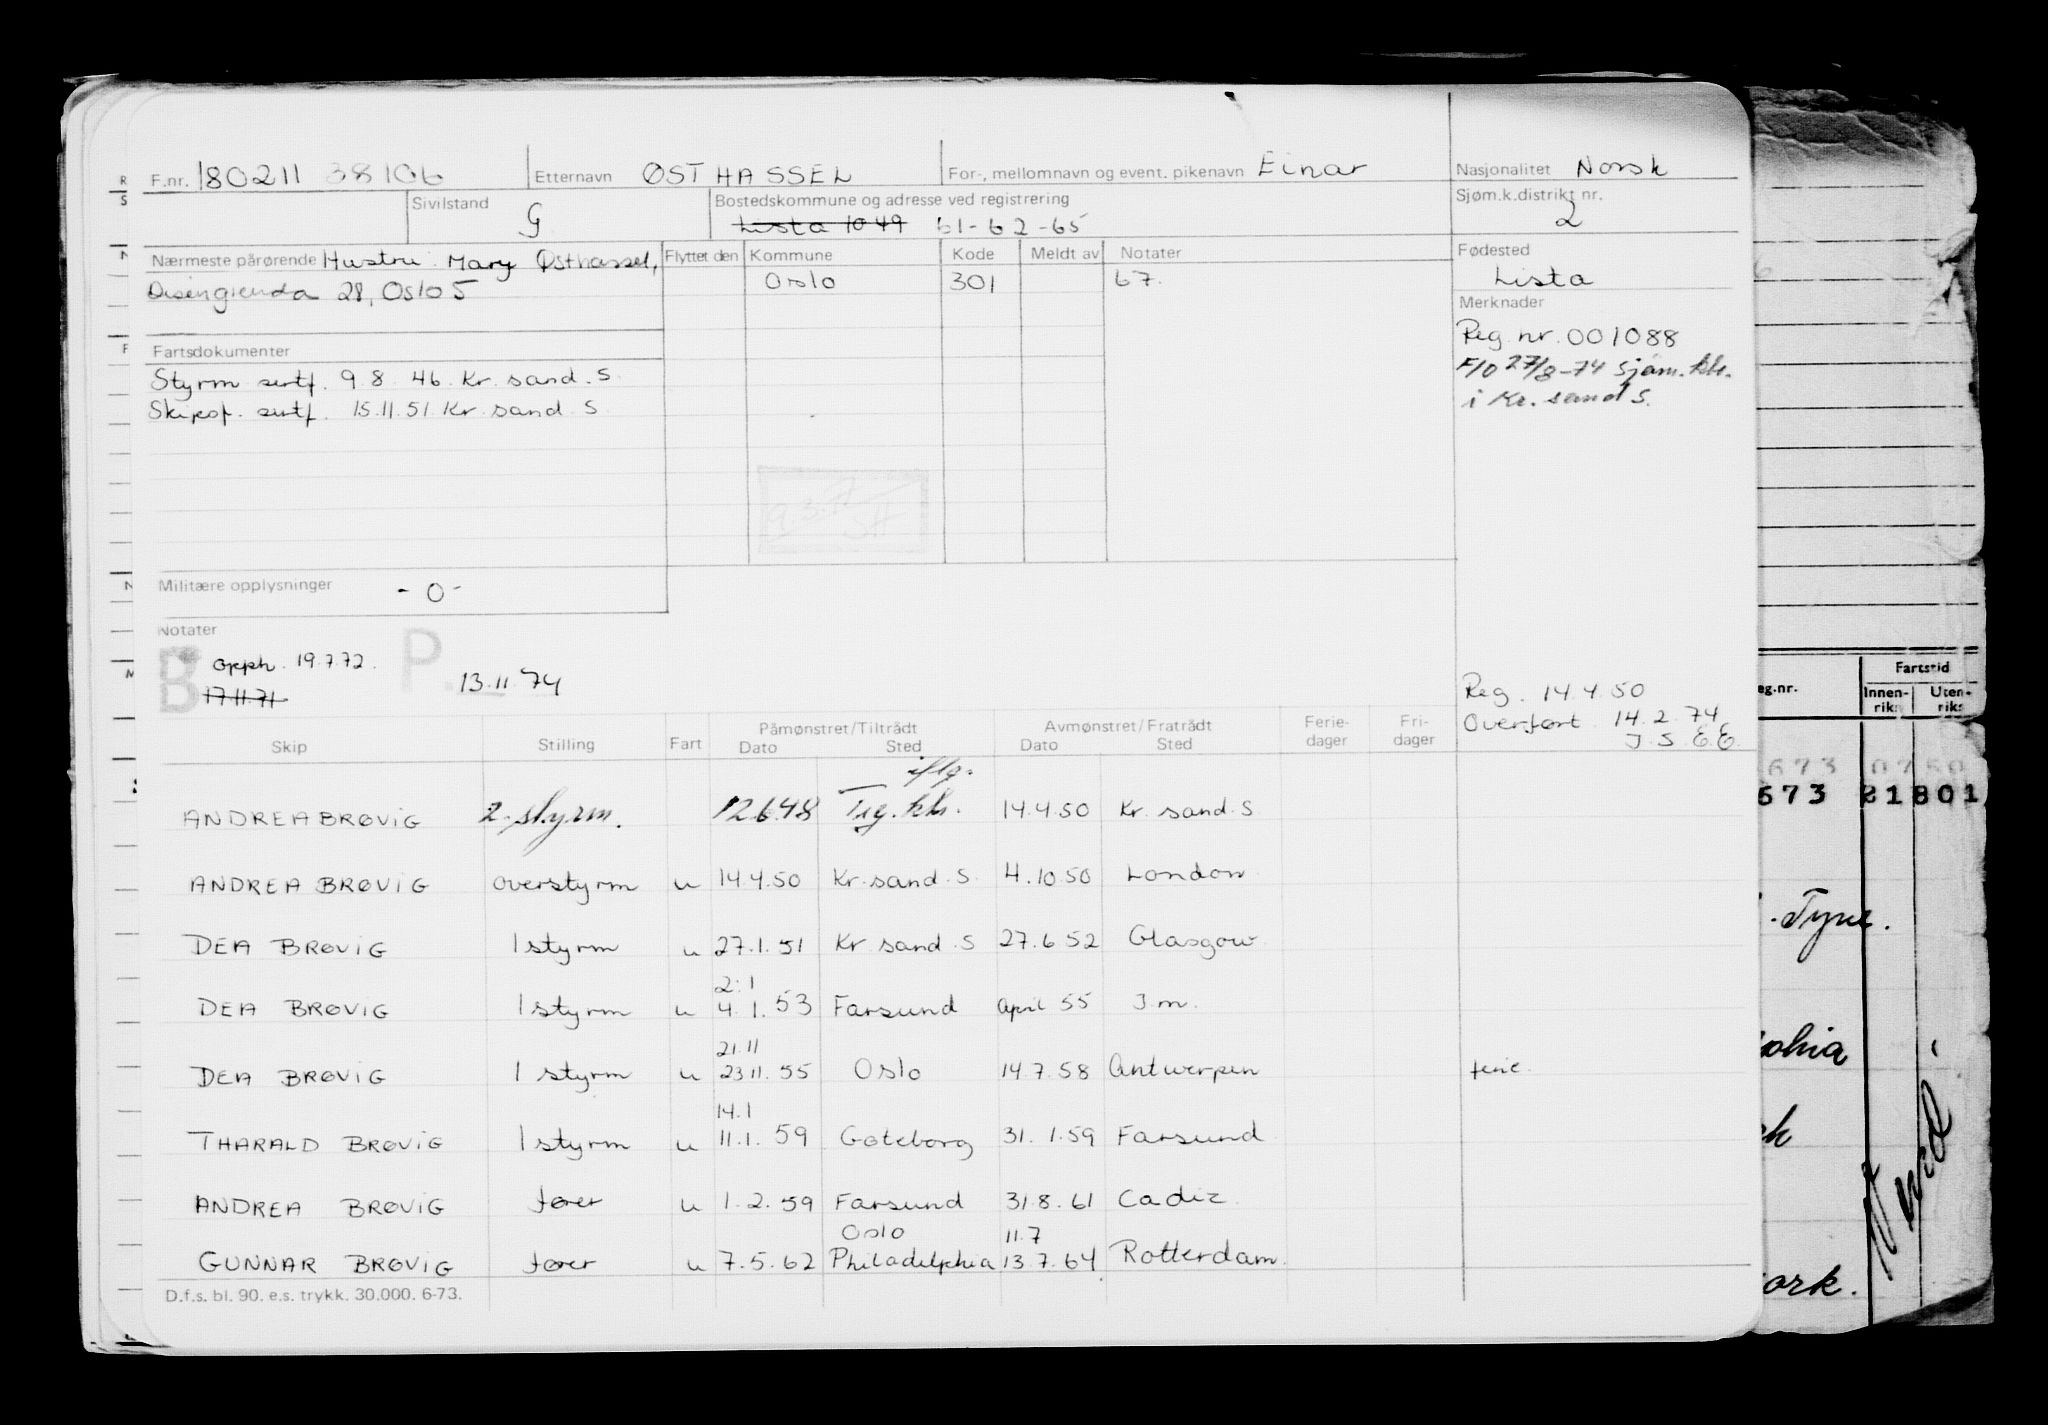 F.nr. 180211 38106 Etternavn ØSTHASSEL For-, mellomnavn og event. pikenavn Einar Nasjonalitet Norsk
Sivilstand G Bostedskommune og adresse ved registrering Lista 1049 61-62-65 Sjøm.k.distrikt nr. 2
Nærmeste pårørende Hustru: Mary Østhassel, Flyttet den Kommune Kode Meldt av Notater Fødested
Disengrenda 28, Oslo 5 Oslo 301 67. Lista
Merknader
Reg. nr. 001088
Fartsdokumenter
F/O 27/8-74 Sjøm.ktr.
Styrm sertf. 9.8.46. Kr. sand. S.
i Kr. sand S.
Skipsf. sertf. 15.11.51. Kr. sand. S
Militære opplysninger -0-
Notater
B opph. 19.7.72. P. 13.11.74
17.11.71
Reg. 14.4.50
Overført 14.2.74
J.S. E.E.
Skip Stilling Fart Påmønstret/Tiltrådt Dato Sted Avmønstret/Fratrådt Dato Sted Ferie-dager Fri-dager
iflg.
ANDREA BRØVIG 2. styrm. 12.6.48 Trg. ktr. 14.4.50 Kr. sand. S
ANDREA BRØVIG overstyrm u 14.4.50 Kr. sand. S. 4.10.50 London
DEA BRØVIG 1 styrm u 27.1.51 Kr sand. S 27.6 52 Glasgow
2.1
DEA BRØVIG 1 styrm u 4.1.53 Farsund april 55 J.m.
21.11
DEA BRØVIG 1 styrm u 23.11.55 Oslo 14.7.58 Antwerpen ferie.
14.1
THARALD BRØVIG 1 styrm u 11.1.59 Gøteborg 31.1.59 Farsund
ANDREA BRØVIG fører u 1.2.59 Farsund 31.8.61 Cadiz
Oslo 11.7
GUNNAR BRØVIG fører u 7.5.62 Philadelphia 13.7.64 Rotterdam
D.f.s. bl. 90. e.s. trykk. 30.000. 6-73.
Fartstid
eg.nr. Innen-riks Uten-riks
673 0750
673 21801
Tyne.
ork.